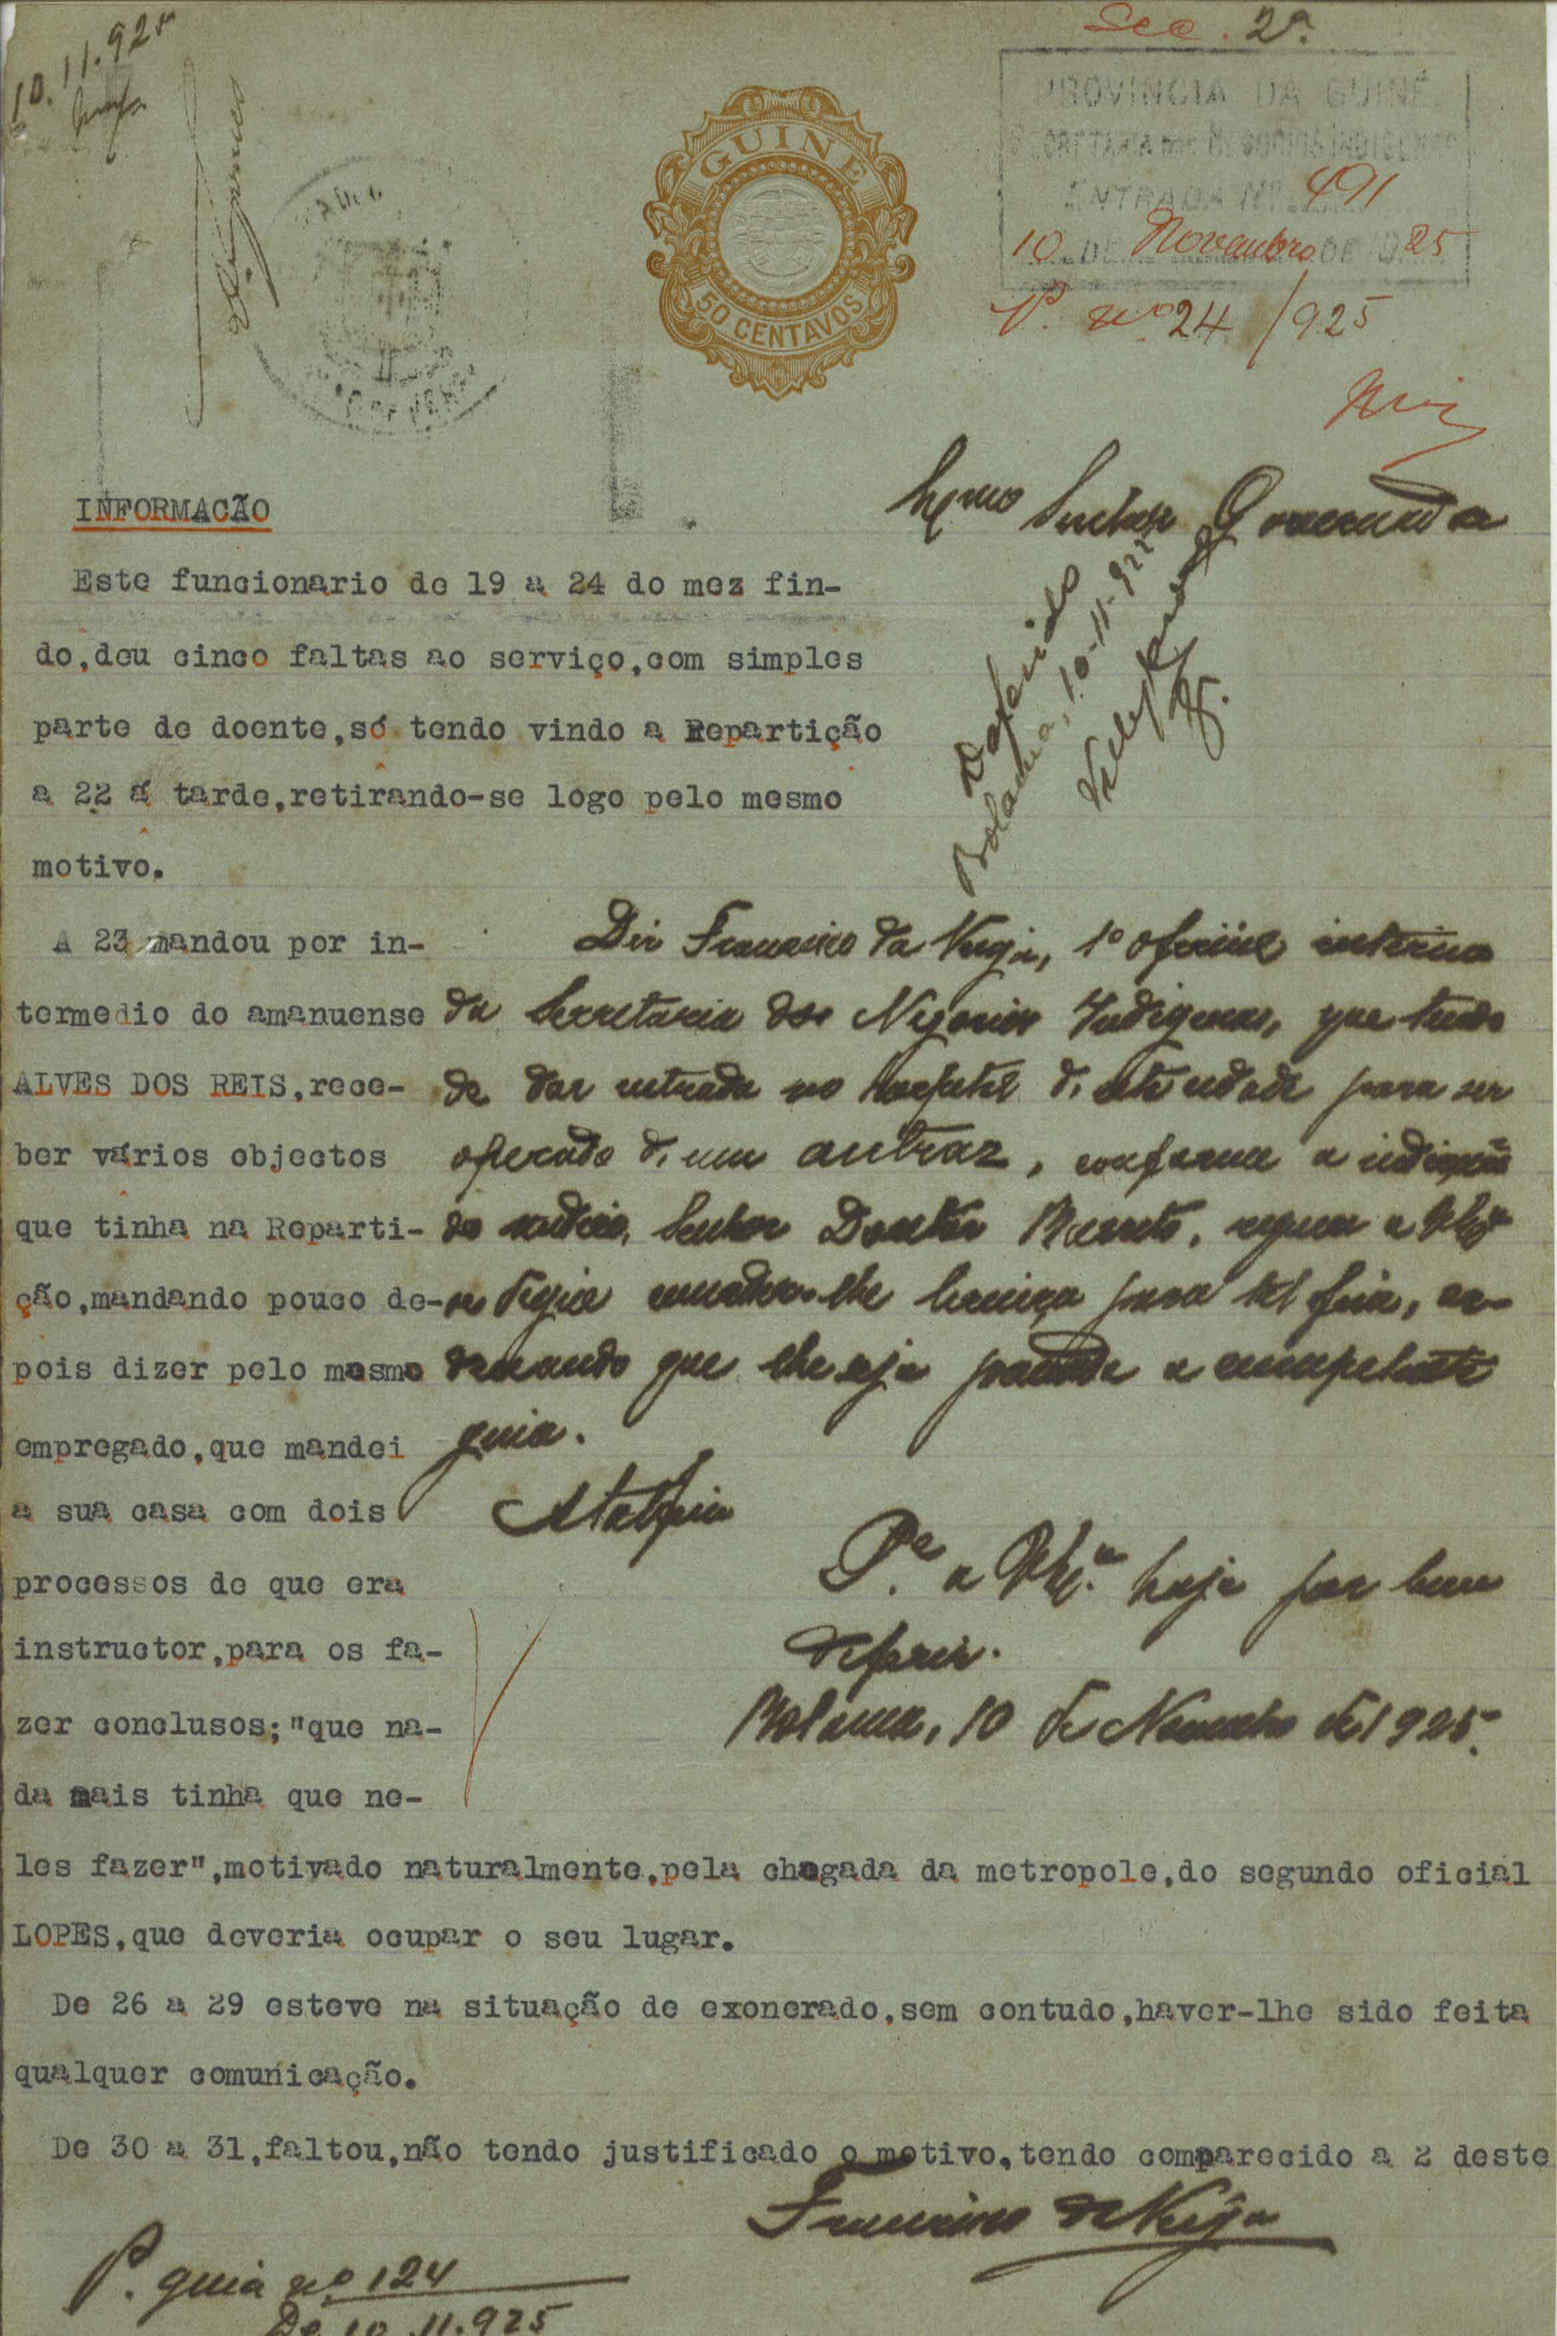 10.11.925
Sec. 2ª.
PROVINCIA DA GUINÉ
ENTRADA Nº 491
10 DE Novembro DE 1925
P. nº 24/925
GUINÉ
50 CENTAVOS
Exmo Senhor Governador
Deferido
Bolama, 10-11-925
INFORMACÃO
Este funcionario de 19 a 24 do mez fin-
do,deu cinco faltas ao serviço,com simples
parte de doente,só tendo vindo a Repartição
a 22 á tarde,retirando-se logo pelo mesmo
motivo.
A 23 mandou por in-
termedio do amanuense
ALVES DOS REIS,rece-
ber vários objectos
que tinha na Reparti-
ção,mandando pouco de-
pois dizer pelo mesmo
empregado,que mandei
a sua casa com dois
processos de que era
instructor,para os fa-
zer conclusos;"que na-
da mais tinha que ne-
les fazer",motivado naturalmente,pela chegada da metropole,do segundo oficial
LOPES,que deveria ocupar o seu lugar.
De 26 a 29 esteve na situação de exonerado,sem contudo,haver-lhe sido feita
qualquer comunicação.
De 30 a 31,faltou,não tendo justificado o motivo,tendo comparecido a 2 deste
Diz Francisco da Veiga, 1º oficial interino
da Secretaria dos Negocios Indigenas, que tendo
de dar entrada no hospital d'esta cidade para ser
operado d'um antraz, conforme a indicação
do medico, Senhor Doutor Barreto, requer a V. Exª
se digne conceder-lhe licença para tal fim, or-
denando que lhe seja passada a competente
guia.
P.e a V. Ex.ª haja por bem
deferir.
Bolama, 10 de Novembro de 1925.
Francisco da Veiga
P. guia nº 124
De 10.11.925